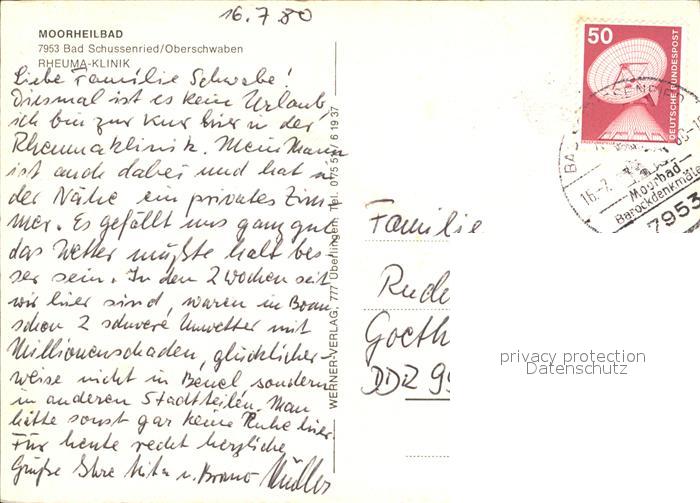 16.7 80
MOORHEILBAD
7953 Bad Schussenried/Oberschwaben
RHEUMA-KLINIK
Liebe Familie Schwabe!
Diesmal ist es kein Urlaub,
ich bin zur Kur hier in der
Rheumaklinik. Mein Mann
ist auch dabei und hat in
der Nähe ein privates Zim-
mer. Es gefällt uns ganz gut
das Wetter müßte halt bes-
ser sein. In den 2 Wochen seit
wir hier sind, waren in Bonn
schon 2 schwere Unwetter mit
Millionenschaden, glücklicher-
weise nicht in Beuel sondern
in anderen Stadtteilen. Man
hätte sonst gar keine Ruhe hier.
Für heute recht herzliche
Grüße Ihre u. Bruno Müller
WERNER-VERLAG, 777 Überlingen, Tel. 0 75 51 / 6 19 37
50
DEUTSCHE BUNDESPOST
BAD SCHUSSENRIED
16.-7.
Moorbad
Barockdenkmäler
7953
Familie
Goeth
DDR 99
privacy protection
Datenschutz